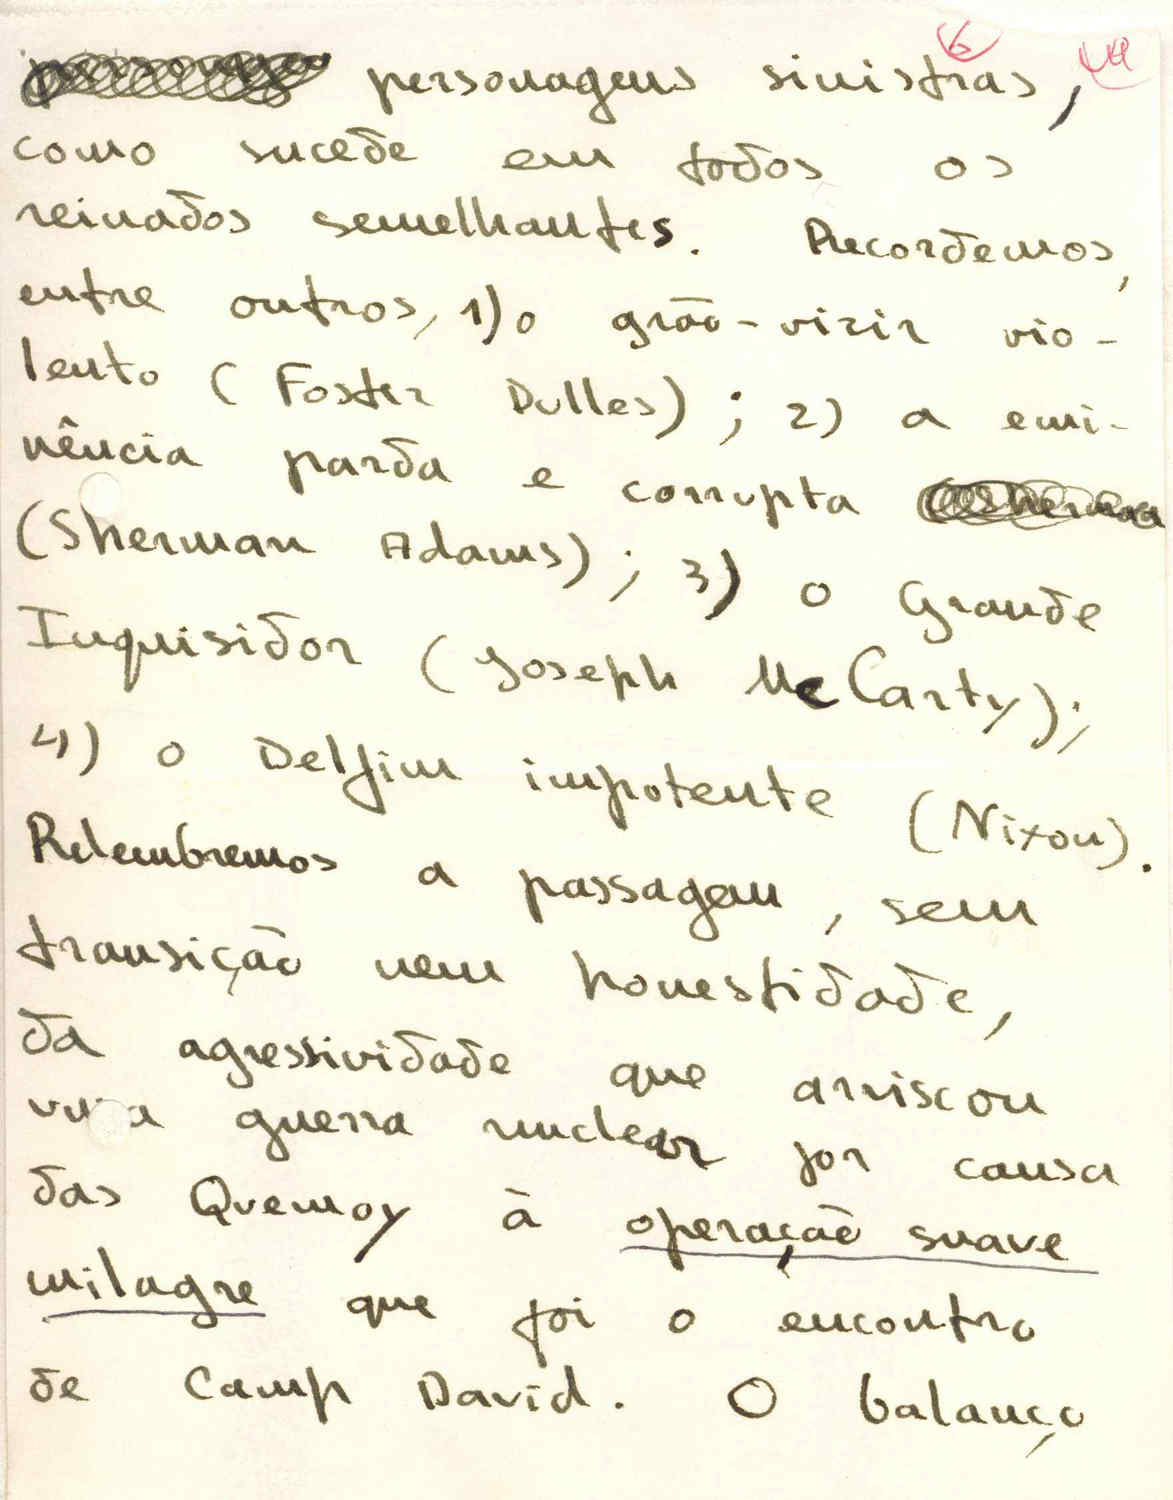 personagens sinistras,
como sucede em todos os
reinados semelhantes. Recordemos,
entre outros, 1) o grão-vizir vio-
lento (Foster Dulles); 2) a emi-
nência parda e corrupta
(Sherman Adams); 3) o Grande
Inquisidor (Joseph McCarty);
4) o Delfim impotente (Nixon).
Relembremos a passagem, sem
transição nem honestidade,
da agressividade que arriscou
uma guerra nuclear por causa
das Quemoy à operação suave
milagre que foi o encontro
de Camp David. O balanço